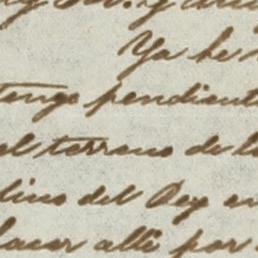 Ya he
tengo pendiente
el terreno de l
lino del Rey en
hacer allí por